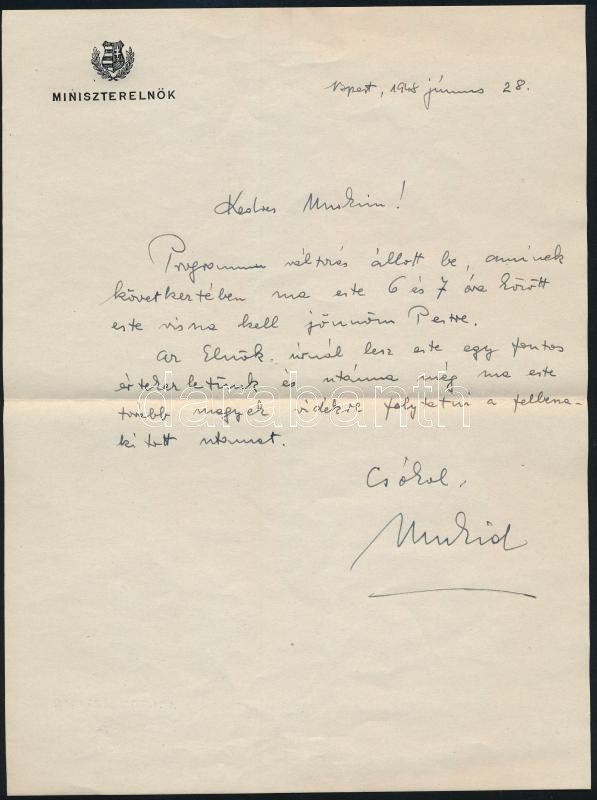 MINISZTERELNÖK
Bpest, 1948 június 28.
Kedves Mukim!
Programm változás állott be, aminek
következtében ma este 6 és 7 óra között
este vissza kell jönnöm Pestre.
az Elnök úrnál lesz este egy fontos
értekezletünk és utánna még ma este
tovább megyek vidékre folytatni a félbesza-
kított utamat.
Csókol,
Mukid
darabanth